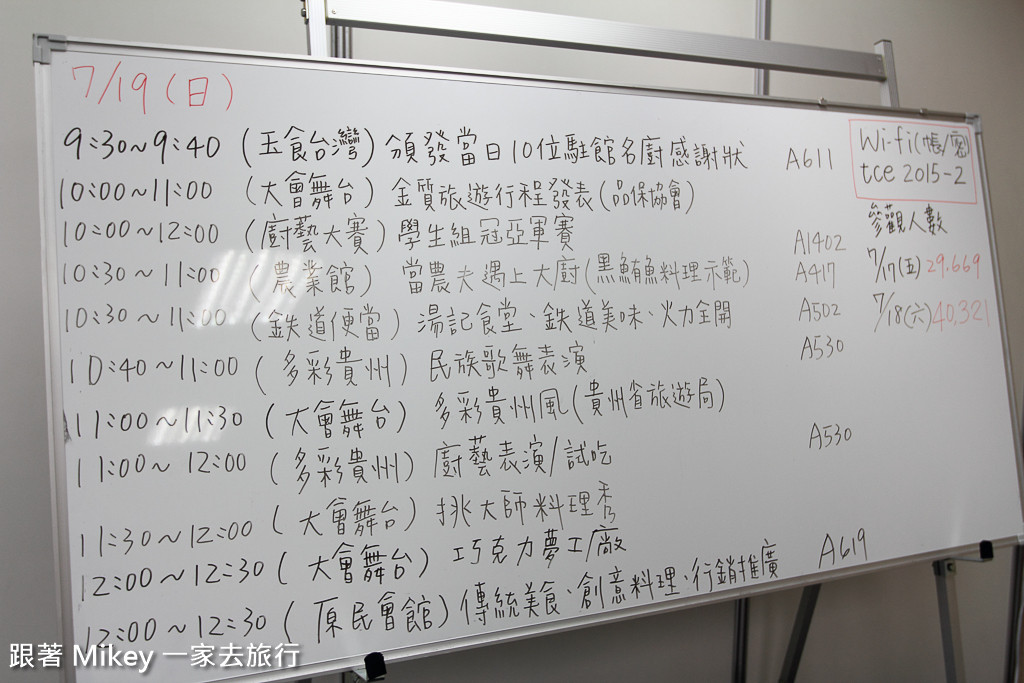 7/19(日)
9:30~9:40 (玉食台灣) 頒發當日10位駐館名廚感謝狀 A611
10:00~11:00 (大會舞台) 金質旅遊行程發表(品保協會)
10:00~12:00 (廚藝大賽) 學生組冠亞軍賽 A1402
10:30~11:00 (農業館) 當農夫遇上大廚(黑鮪魚料理示範) A417
10:30~11:00 (鉄道便當) 湯記食堂、鉄道美味、火力全開 A502
10:40~11:00 (多彩貴州) 民族歌舞表演 A530
11:00~11:30 (大會舞台) 多彩貴州風(貴州省旅遊局)
11:00~12:00 (多彩貴州) 廚藝表演/試吃 A530
11:30~12:00 (大會舞台) 挑大師料理秀
12:00~12:30 (大會舞台) 巧克力夢工廠
12:00~12:30 (原民會館) 傳統美食、創意料理、行銷推廣 A619
Wi-fi(帳/密)
tce 2015-2
參觀人數
7/17(五) 29,669
7/18(六) 40,321
跟著 Mikey 一家去旅行